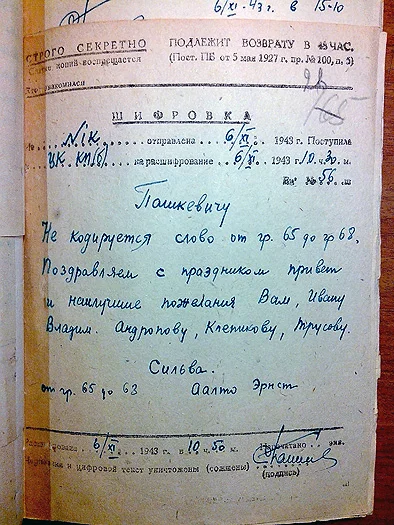 6/XI-43 г. в 15-10
СТРОГО СЕКРЕТНО ПОДЛЕЖИТ ВОЗВРАТУ В 48 ЧАС.
Снятие копий воспрещается (Пост. ПБ от 5 мая 1927 г. пр. № 100, п. 5)
ШИФРОВКА
№1к отправлена 6/XI 1943 г. Поступила
ЦК КП(б) на расшифрование 6/XI 1943 г. 10 ч. 30 м.
Вх. № 56 ш
Пашкевичу
Не кодируется слово от гр. 65 до гр 68.
Поздравляем с праздником привет
и наилучшие пожелания Вам, Ивану
Владим. Андропову, Клепикову, Трусову.
Сильва.
от гр. 65 до 63 Аалто Эрнст
6/XI 1943 г. в 10 ч. 50 м. Напечатано экз.
и цифровой текст уничтожены (сожжены)
(подпись)